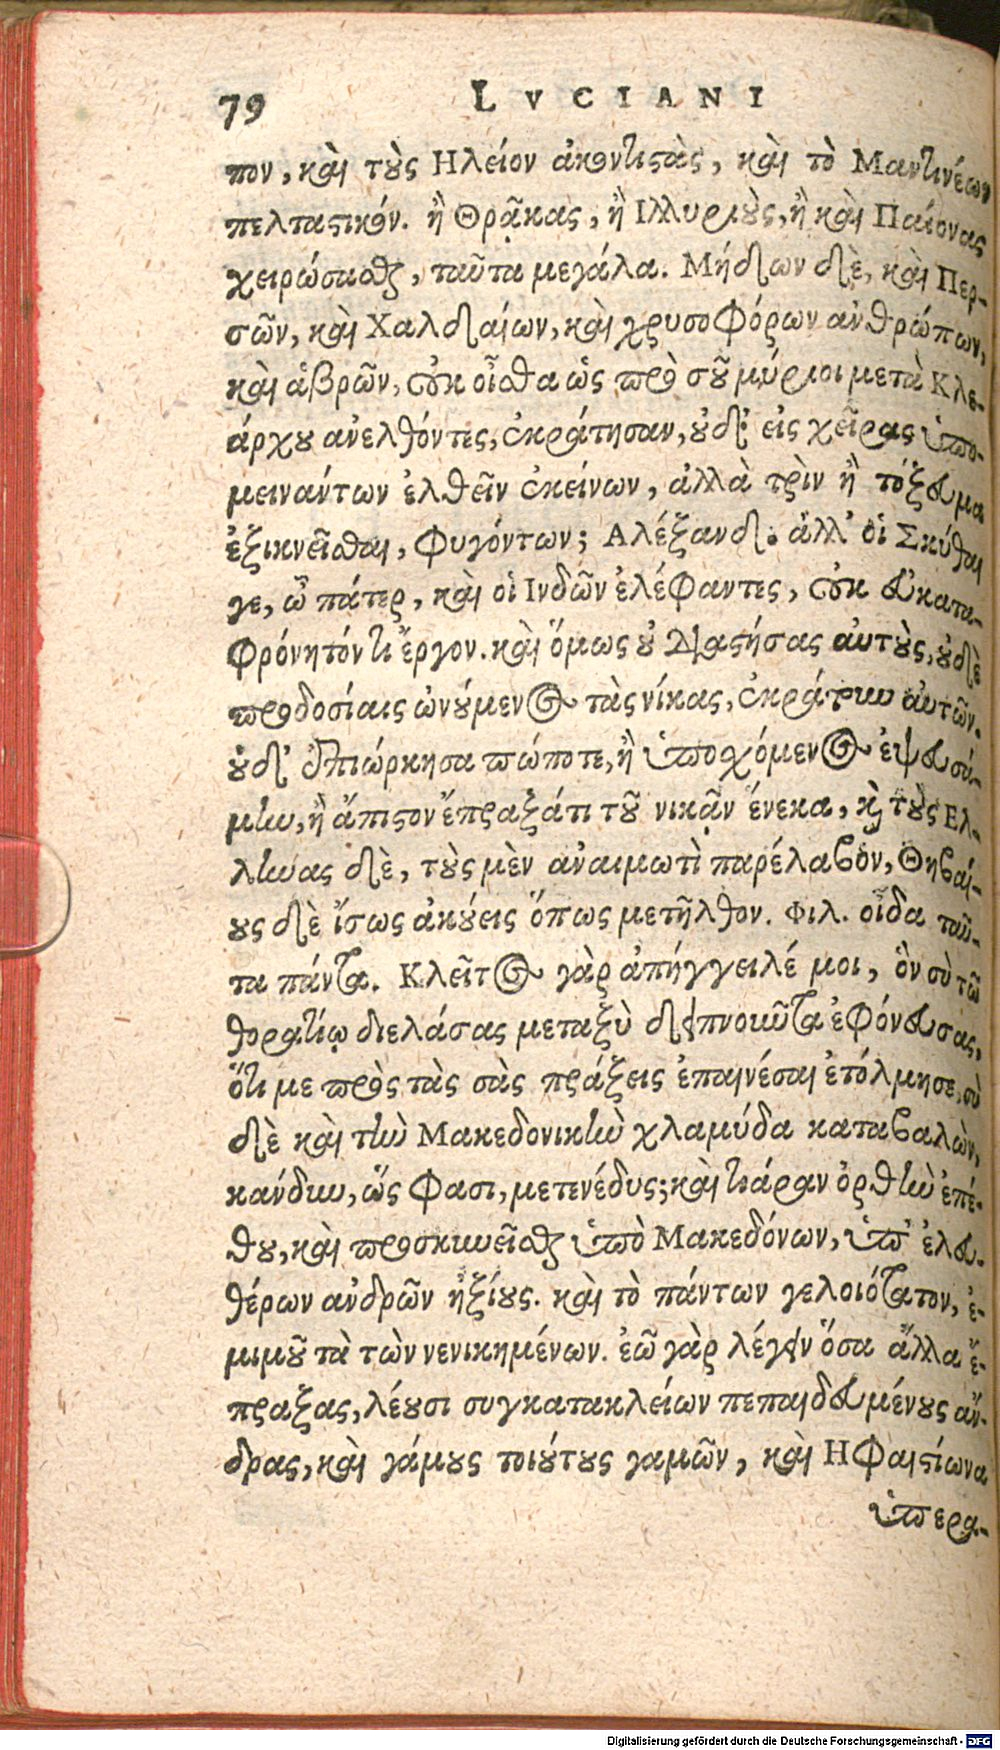 79 LVCIANI
πον, καὶ τοὺς Ηλείον ἀκοντιστὰς, καὶ τὸ Μαντινέων
πελταστικόν. ἢ Θρᾷκας, ἢ Ιλλυριοὺς, ἢ καὶ Παίονας
χειρώσασθαι, ταῦτα μεγάλα. Μήδων δὲ, καὶ Περ-
σῶν, καὶ Χαλδαίων, καὶ χρυσοφόρων ἀνθρώπων,
καὶ ἁβρῶν, οὐκ οἶσθα ὡς πρὸ σοῦ μύριοι μετὰ Κλε-
άρχου ἀνελθόντες, ἐκράτησαν, οὐδ' εἰς χεῖρας ὑπο-
μεινάντων ἐλθεῖν ἐκείνων, ἀλλὰ πρὶν ἢ τόξευμα
ἐξικνεῖσθαι, φυγόντων; Αλέξανδ. ἀλλ' οἱ Σκύθαι
γε, ὦ πάτερ, καὶ οἱ Ινδῶν ἐλέφαντες, οὐκ εὐκατα-
φρόνητόν τι ἔργον. καὶ ὅμως οὐ διαστήσας αὐτοὺς, οὐδὲ
προδοσίαις ὠνούμενος τὰς νίκας, ἐκράτουν αὐτῶν.
οὐδ' ἐπιώρκησα πώποτε, ἢ ὑποσχόμενος ἐψευσά-
μην, ἢ ἄπιστον ἔπραξά τι τοῦ νικᾷν ἕνεκα, καὶ τοὺς Ελ-
ληνας δὲ, τοὺς μὲν ἀναιμωτὶ παρέλαβον, Θηβαί-
ους δὲ ἴσως ἀκούεις ὅπως μετῆλθον. Φιλ. οἶδα ταῦ-
τα πάντα. Κλεῖτος γὰρ ἀπήγγειλέ μοι, ὃν σὺ τῷ
θορατίῳ διελάσας μεταξὺ δειπνοῦντα ἐφόνευσας,
ὅτι με πρὸς τὰς σὰς πράξεις ἐπαινέσαι ἐτόλμησε, σὺ
δὲ καὶ τὴν Μακεδονικὴν χλαμύδα καταβαλὼν,
κάνδυν, ὥς φασι, μετενέδυς; καὶ τιάραν ὀρθὴν ἐπέ-
θου, καὶ προσκυνεῖσθαι ὑπὸ Μακεδόνων, ὑπ' ἐλευ-
θέρων ἀνδρῶν ἠξίους. καὶ τὸ πάντων γελοιότατον, ἐ-
μιμοῦ τὰ τῶν νενικημένων. ἐῶ γὰρ λέγειν ὅσα ἄλλα ἔ-
πραξας, λέουσι συγκατακλείων πεπαιδευμένους ἄν-
δρας, καὶ γάμους τοιούτους γαμῶν, καὶ Ηφαιστίωνα
ὑπερα-
Digitalisierung gefördert durch die Deutsche Forschungsgemeinschaft - DFG